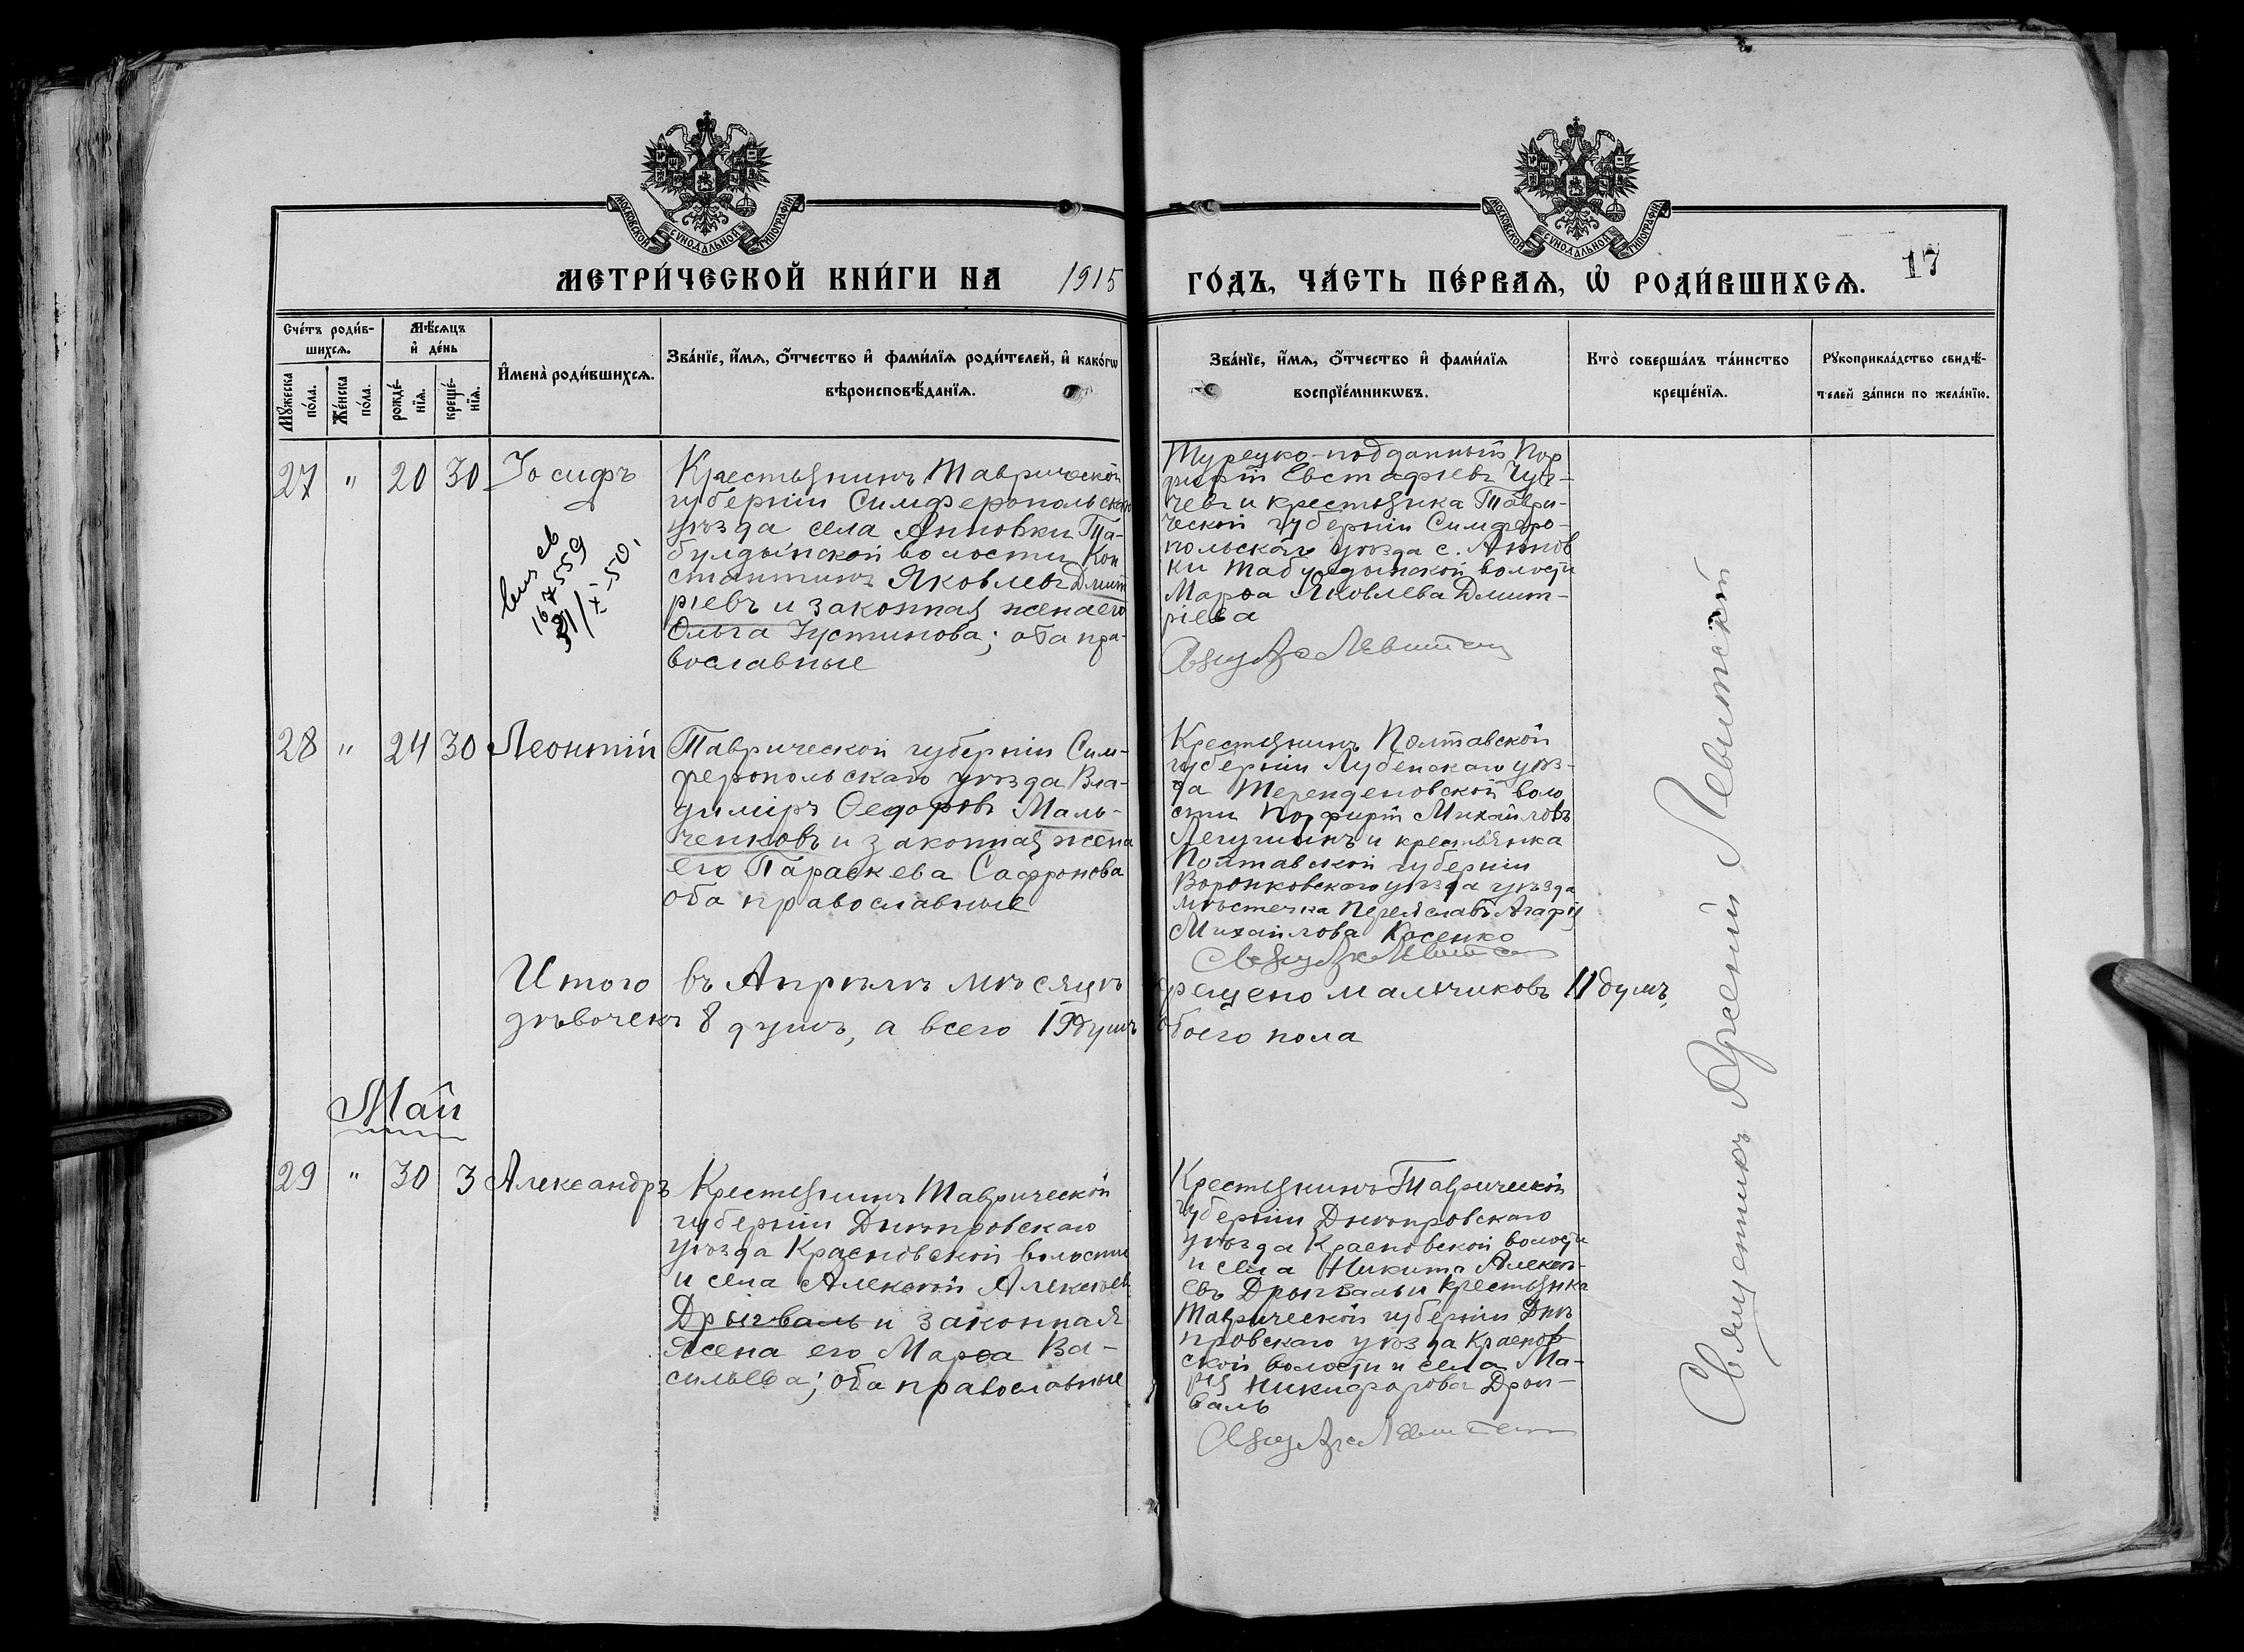 МОСКОВСКОЙ СУНОДАЛЬНОЙ ТИПОГРАФІИ
МОСКОВСКОЙ СУНОДАЛЬНОЙ ТИПОГРАФІИ
МЕТРИ́ЧЕСКОЙ КНИ́ГИ НА 1915
ГО́ДЪ, ЧА́СТЬ ПЕ́РВАѦ, Ѡ҆ РОДИ́ВШИХСѦ.
17
Сче́тъ роди́в-
шихсѧ.
Мѣ́сѧцъ
и҆ де́нь
Мꙋ́жеска
по́ла.
Же́нска
по́ла.
рожде́-
нїѧ.
креще́-
нїѧ.
И҆мена̀ роди́вшихсѧ.
Зва́нїе, и҆́мѧ, ѻ҆́тчество и҆ фами́лїѧ роди́телей, и҆ како́гѡ
вѣроисповѣ́данїѧ.
Зва́нїе, и҆́мѧ, ѻ҆́тчество и҆ фами́лїѧ
воспрїе́мникѡвъ.
Кто̀ соверша́лъ та́инство
креще́нїѧ.
Рꙋкоприкла́дство свидѣ́-
телей за́писи по жела́нїю.
27 " 20 30 Іосифъ
св
167559
21/X-50.
Крестьянинъ Таврической
губерніи Симферопольскаго
уѣзда села Анновки Та-
булдынской волости Кон
стантинъ Яковлевъ Дмит
ріевъ и законная жена его
Ольга Іустинова; оба пра-
вославные
Турецко-подданный Пор
фирій Евстафіевъ
и крестьянка Таври-
ческой губерніи Симферо-
польскаго уѣзда с. Аннов
ки Табулдынской волости
Марѳа Яковлева Дмит-
ріева
28 " 24 30 Леонтій
Таврической губерніи Сим-
феропольскаго уѣзда Вла-
диміръ Ѳедоровъ Маль-
ченковъ и законная жена
его Параскева Сафронова
оба православные
Крестьянинъ Полтавской
губерніи Лубенскаго уѣз-
да волo
сти Порфирій Михайловъ
и крестьянка
Полтавской губерніи
Воронковскаго уѣзда уѣзда
мѣстечка Переяславъ Агафія
Михайлова Косенко
Итого въ Апрѣлѣ мѣсяцѣ крещено мальчиковъ 11 душъ,
дѣвочекъ 8 душъ, а всего 19 душъ обоего пола
Май
29 " 30 3 Александръ
Крестьянинъ Таврической
губерніи Днѣпровскаго
уѣзда Краснoвской волости
и села Алексѣй Алексѣевъ
Дрыгваль и законная
жена его Марѳа Ва-
сильева; оба православные
Крестьянинъ Таврической
губерніи Днѣпровскаго
уѣзда Красновской волости
и села Никита Алексѣ-
евъ Дрыгваль и крестьянка
Таврической губерніи Днѣ
провскаго уѣзда Краснов
ской волости и села Ма-
рія Никифорова
валь
Священникъ Арсеній Левитскій